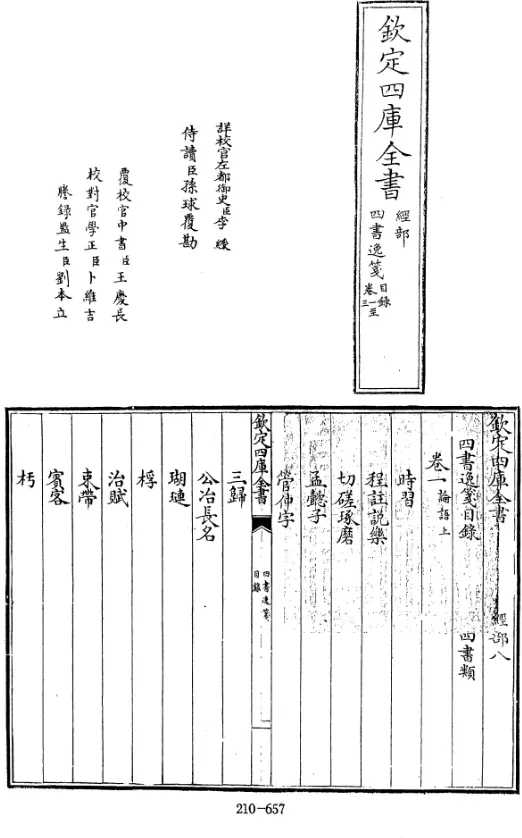 欽定四庫全書
經部
四書逸箋
目錄
卷一至
三
詳校官左都御史臣李綬
侍讀臣孫球覆勘
覆校官中書臣王慶長
校對官學正臣卜維吉
謄錄監生臣劉本立
欽定四庫全書 經部八
四書逸箋目錄 四書類
卷一論語上
時習
程註說樂
切磋琢磨
孟懿子
管仲字
欽定四庫全書
四書逸箋
目錄
一
三歸
公冶長名
瑚璉
桴
治賦
束帶
賓客
朽
210-657